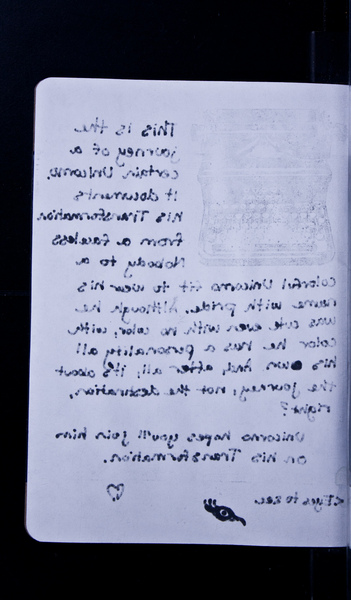 This is the
journey of a
certain Unicorno.
It documents
his Transformation
from a faceless
Nobody to a
colorful Unicorno fit to wear his
name with pride. Although he
was cute even with no color, with
color he has a personality all
his own. And, after all, it's about
the journey, not the destination,
right?
Unicorno hopes you'll join him
on his Transformation.
Eyes to see